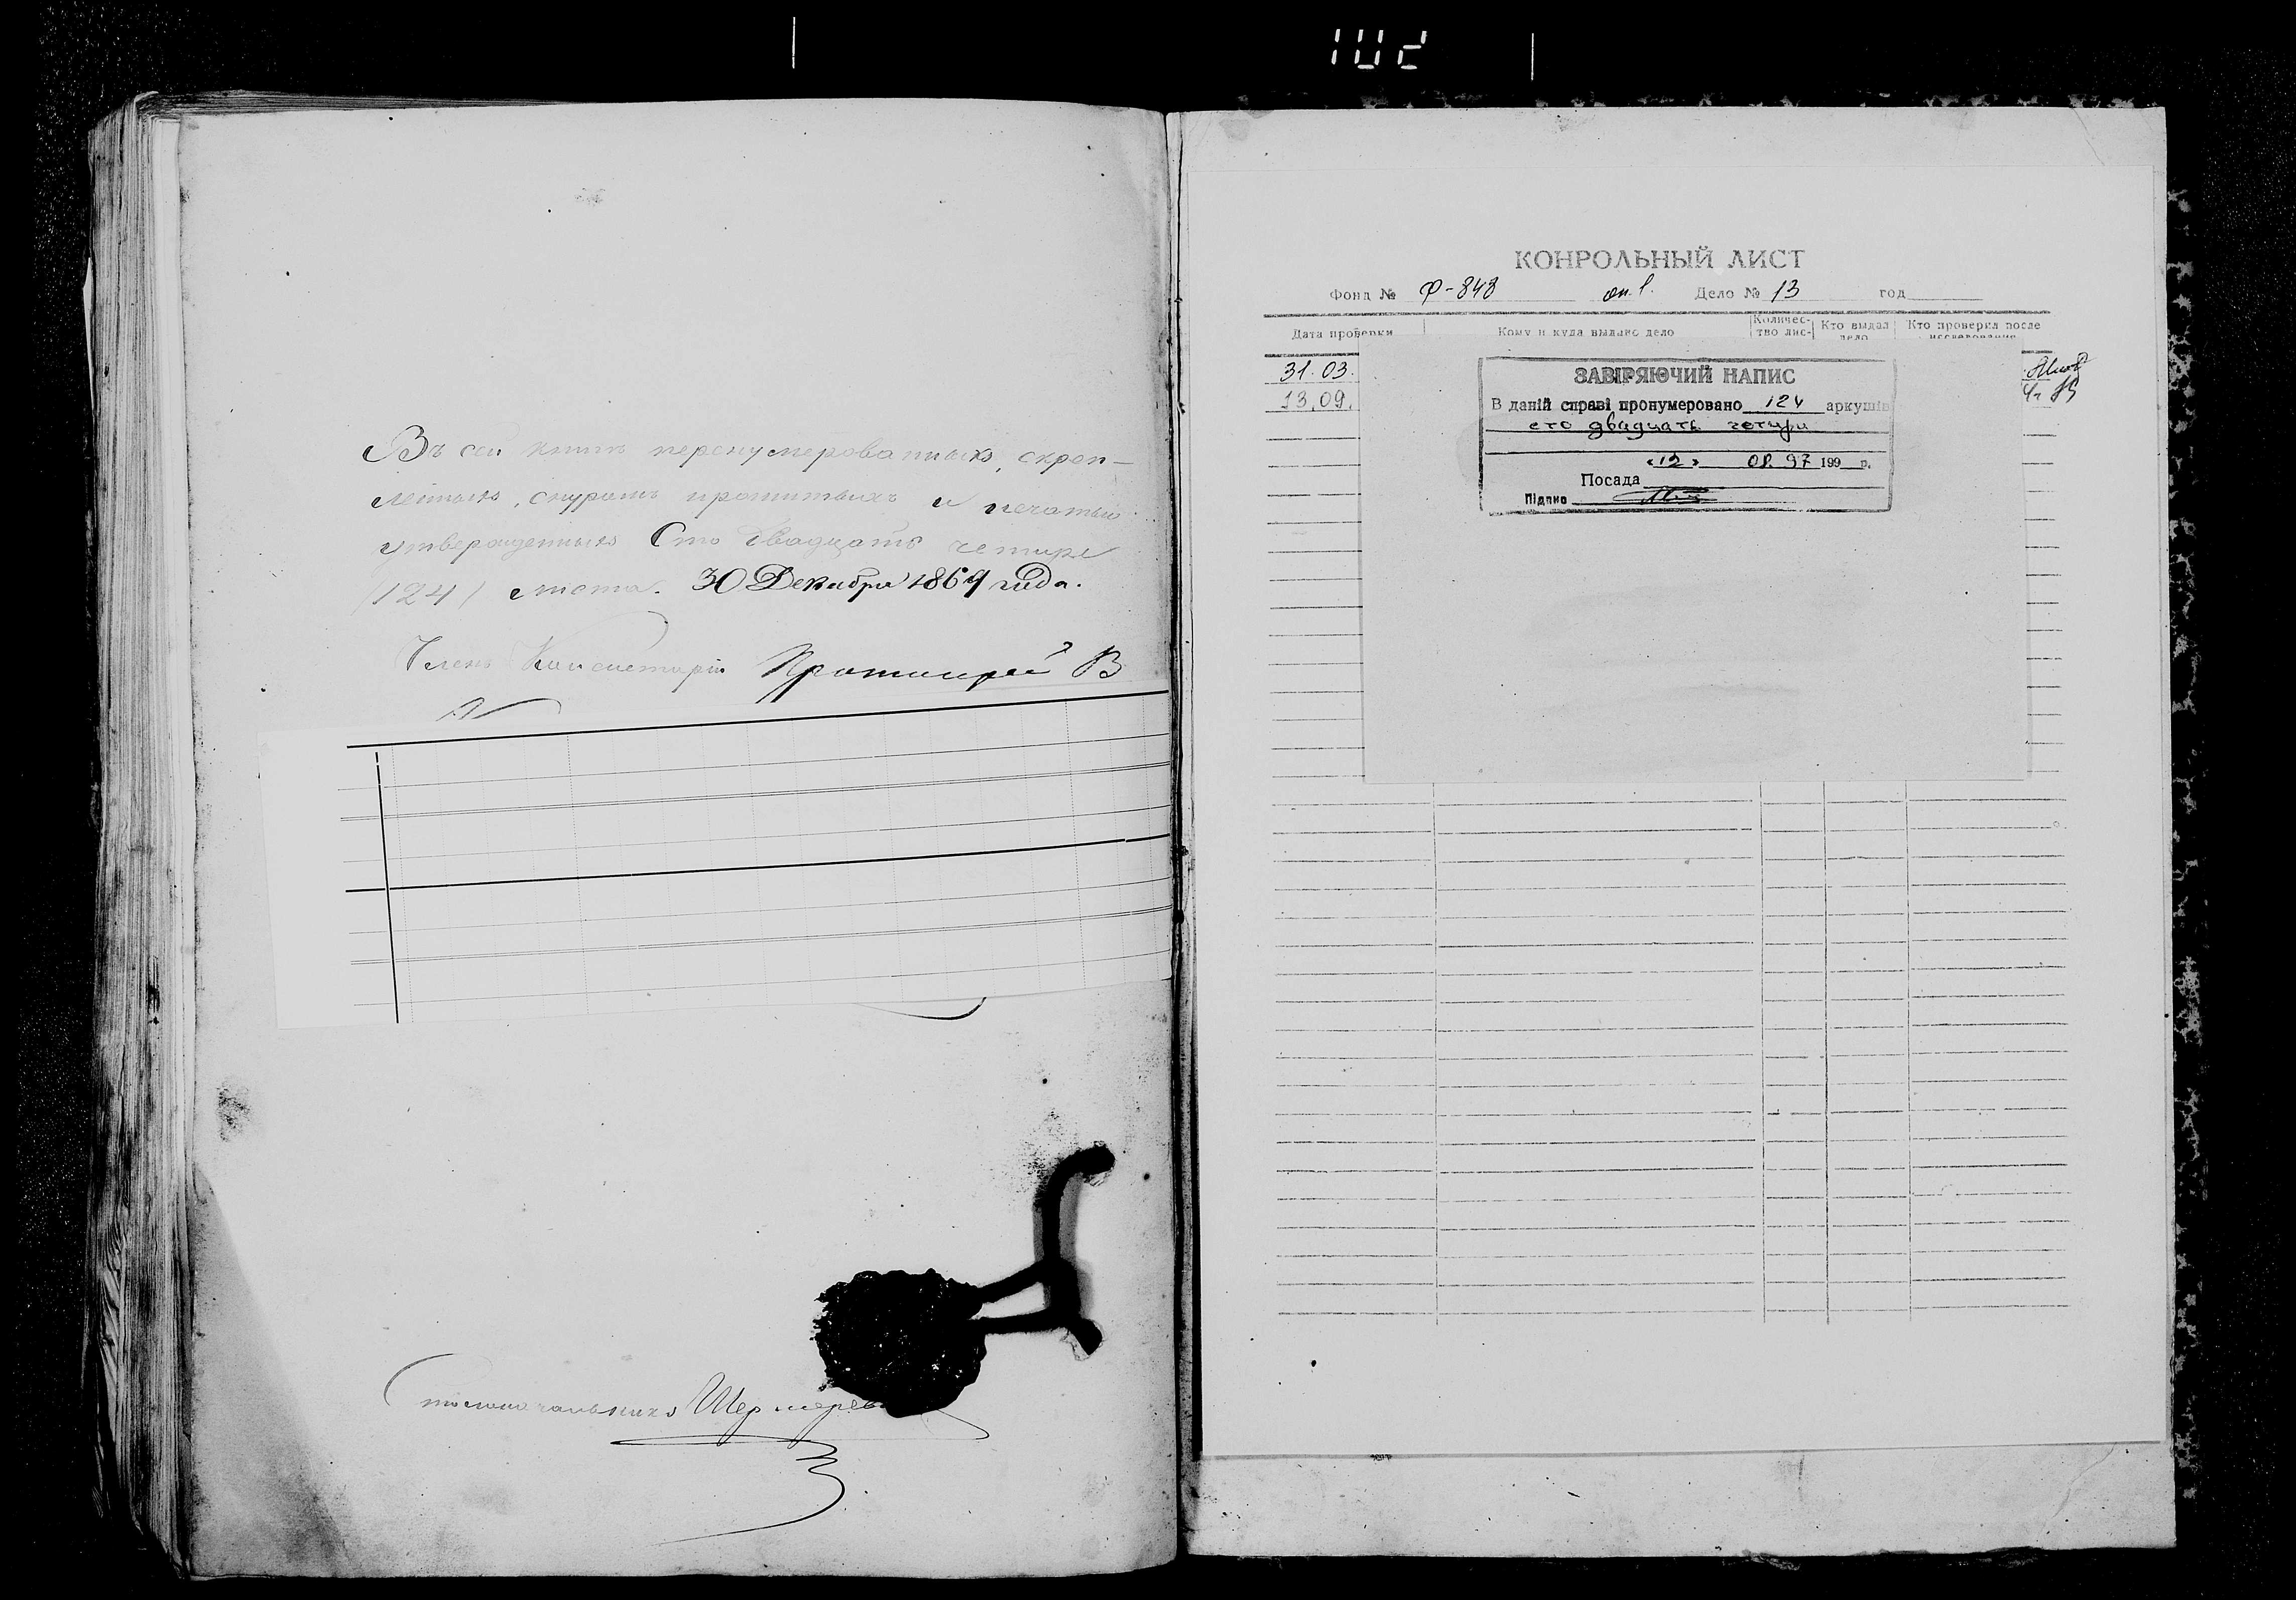 102
Въ сей книгѣ перенумерованныхъ, скреп-
леныхъ, снуромъ прошитыхъ и печатью
утвержденныхъ Сто двадцать четыре
(124) листа. 30 Декабря 1869 года.
Членъ Консисторіи Протоиерей В
Столоначальникъ
КОНРОЛЬНЫЙ ЛИСТ
Фонд № Ф-848 оп. 1. Дело № 13 год
Дата проверки Кому и куда выдано дело Количес-тво лис- Кто выдал дело Кто проверил после исследования
31.03.
13.09.
ЗАВІРЯЮЧИЙ НАПИС
В даній справі пронумеровано 124 аркушів
сто двадцать четыри
«12» 08.97 199 р.
Посада
Підпис